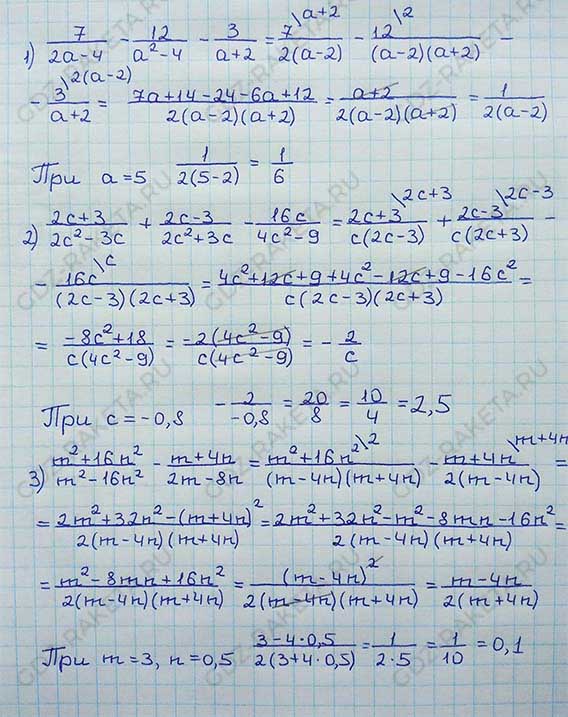 1) 7/(2a-4) - 12/(a²-4) - 3/(a+2) = 7\a+2/(2(a-2)) - 12\2/((a-2)(a+2)) -
- 3\2(a-2)/(a+2) = (7a+14-24-6a+12)/(2(a-2)(a+2)) = (a+2)/(2(a-2)(a+2)) = 1/(2(a-2))
При a=5 1/(2(5-2)) = 1/6
2) (2c+3)/(2c²-3c) + (2c-3)/(2c²+3c) - 16c/(4c²-9) = (2c+3)\2c+3/(c(2c-3)) + (2c-3)\2c-3/(c(2c+3)) -
- 16c\c/((2c-3)(2c+3)) = (4c²+12c+9+4c²-12c+9-16c²)/(c(2c-3)(2c+3)) =
= (-8c²+18)/(c(4c²-9)) = (-2(4c²-9))/(c(4c²-9)) = - 2/c
При c=-0,8 - 2/(-0,8) = 20/8 = 10/4 = 2,5
3) (m²+16n²)/(m²-16n²) - (m+4n)/(2m-8n) = (m²+16n²)\2/((m-4n)(m+4n)) - (m+4n)\m+4n/(2(m-4n)) =
= (2m²+32n²-(m+4n)²)/(2(m-4n)(m+4n)) = (2m²+32n²-m²-8mn-16n²)/(2(m-4n)(m+4n)) =
= (m²-8mn+16n²)/(2(m-4n)(m+4n)) = (m-4n)²/(2(m-4n)(m+4n)) = (m-4n)/(2(m+4n))
При m=3, n=0,5 (3-4·0,5)/(2(3+4·0,5)) = 1/(2·5) = 1/10 = 0,1
GDZ-RAKETA.RU